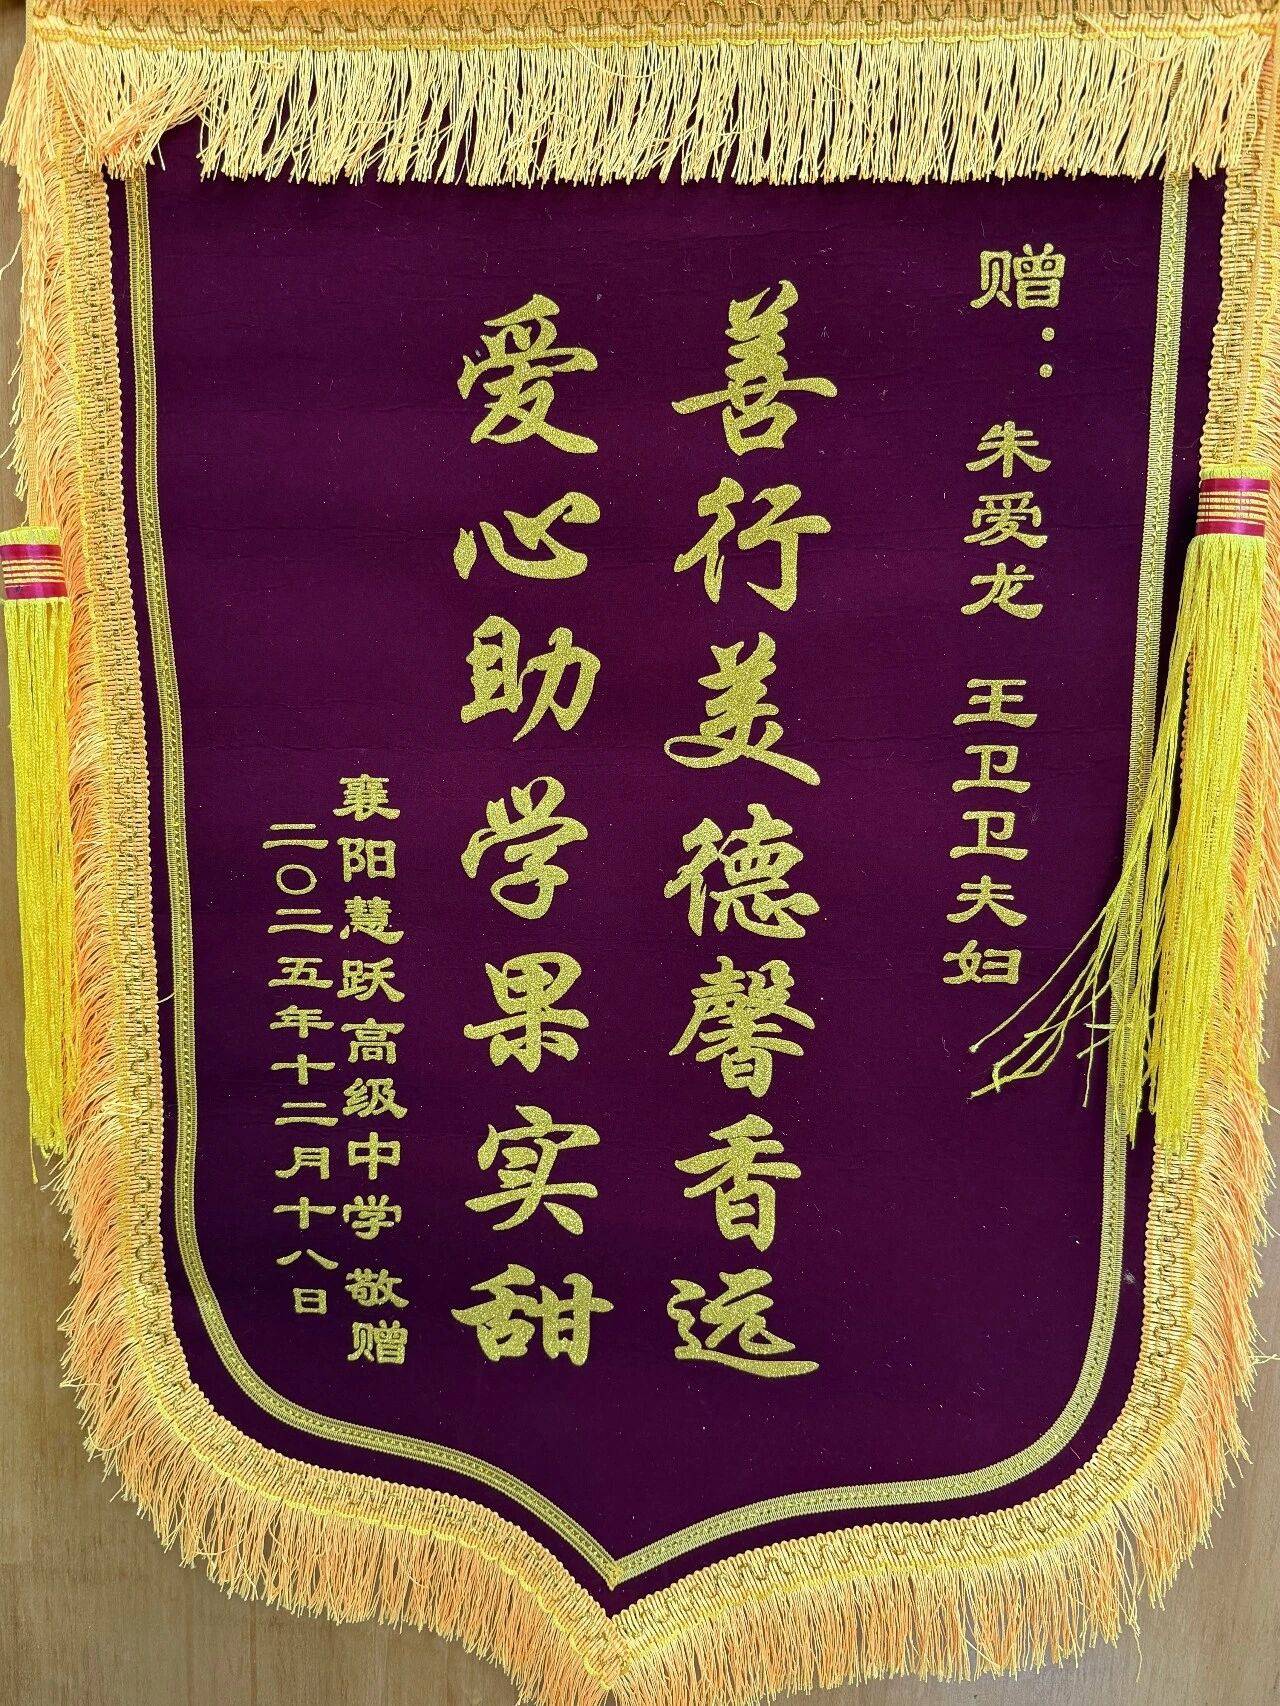 赠：朱爱龙 王卫卫夫妇
善行美德馨香远
爱心助学果实甜
襄阳慧跃高级中学 敬赠
二〇二五年十二月十八日